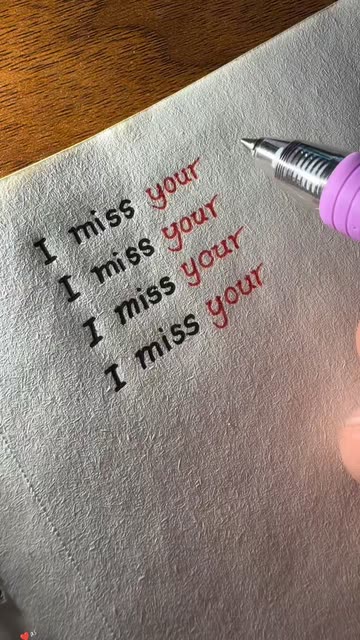 I miss your
I miss your
I miss your
I miss your